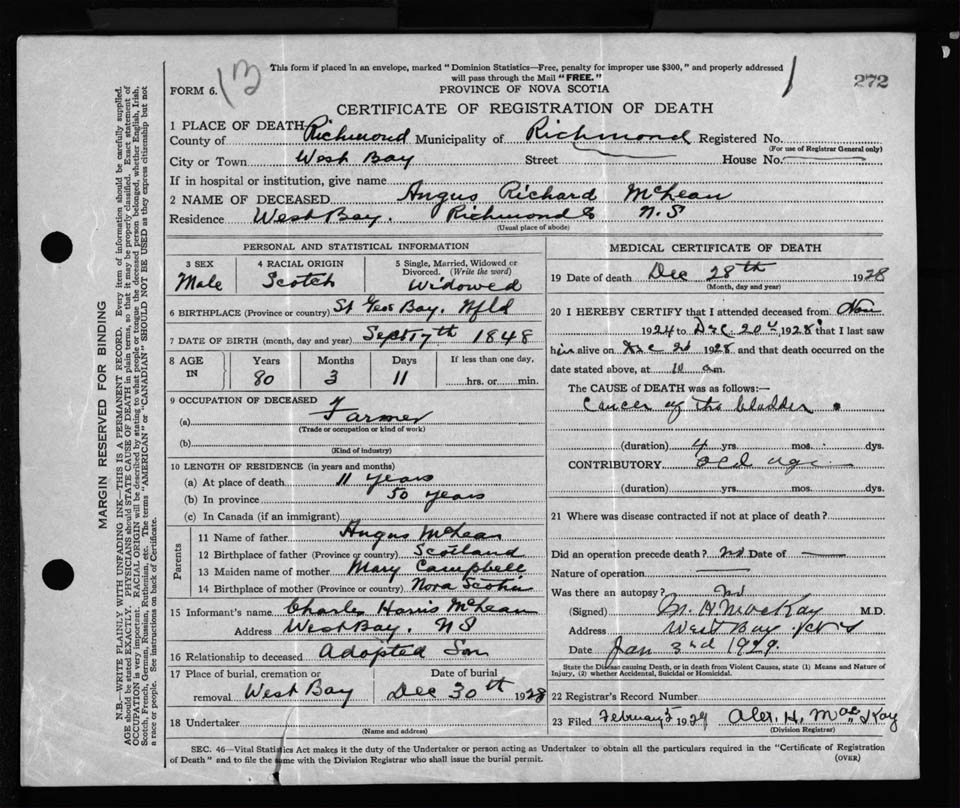 This form if placed in an envelope, marked "Dominion Statistics—Free, penalty for improper use $300," and properly addressed
will pass through the Mail "FREE."
FORM 6.
PROVINCE OF NOVA SCOTIA
272
CERTIFICATE OF REGISTRATION OF DEATH
1 PLACE OF DEATH
County of Richmond Municipality of Richmond Registered No.
(For use of Registrar General only)
City or Town West Bay Street House No.
If in hospital or institution, give name
2 NAME OF DECEASED Angus Richard McLean
Residence West Bay. Richmond Co N.S
(Usual place of abode)
PERSONAL AND STATISTICAL INFORMATION
3 SEX 4 RACIAL ORIGIN 5 Single, Married, Widowed or
Divorced. (Write the word)
Male Scotch Widowed
6 BIRTHPLACE (Province or country) St Geo Bay. Nfld
7 DATE OF BIRTH (month, day and year) Sept 17th 1848
8 AGE IN Years Months Days If less than one day,
80 3 11 hrs. or min.
9 OCCUPATION OF DECEASED
(a) Farmer
(Trade or occupation or kind of work)
(b)
(Kind of industry)
10 LENGTH OF RESIDENCE (in years and months)
(a) At place of death 11 years
(b) In province 50 years
(c) In Canada (if an immigrant)
Parents
11 Name of father Angus McLean
12 Birthplace of father (Province or country) Scotland
13 Maiden name of mother Mary Campbell
14 Birthplace of mother (Province or country) Nova Scotia
15 Informant's name Charles Harris McLean
Address West Bay. NS
16 Relationship to deceased Adopted Son
17 Place of burial, cremation or Date of burial
removal West Bay Dec 30th 1928
18 Undertaker
(Name and address)
MEDICAL CERTIFICATE OF DEATH
19 Date of death Dec 28th 1928
(Month, day and year)
20 I HEREBY CERTIFY that I attended deceased from Nov
1924 to Dec. 20 1928 that I last saw
him alive on Dec 20 1928 and that death occurred on the
date stated above, at 10 a.m.
The CAUSE of DEATH was as follows:—
Cancer of the bladder
(duration) 4 yrs. mos. dys.
CONTRIBUTORY old age
(duration) yrs. mos. dys.
21 Where was disease contracted if not at place of death?
Did an operation precede death? no Date of
Nature of operation
Was there an autopsy? no
(Signed) MacKay M.D.
Address West Bay
Date Jan 3rd 1929.
State the Disease causing Death, or in death from Violent Causes, state (1) Means and Nature of
Injury, (2) whether Accidental, Suicidal or Homicidal.
22 Registrar's Record Number
23 Filed February 5 1929 Alex. H. MacKay
(Division Registrar)
SEC. 46—Vital Statistics Act makes it the duty of the Undertaker or person acting as Undertaker to obtain all the particulars required in the "Certificate of Registration
of Death" and to file the same with the Division Registrar who shall issue the burial permit.
(OVER)
MARGIN RESERVED FOR BINDING
N.B.—WRITE PLAINLY WITH UNFADING INK—THIS IS A PERMANENT RECORD. Every item of information should be carefully supplied.
AGE should be stated EXACTLY. PHYSICIANS should STATE CAUSE OF DEATH in plain terms, so that it may be properly classified. Exact statement of
OCCUPATION is very important. RACIAL ORIGIN will be described by stating to what people or tongue the deceased person belonged, whether English, Irish,
Scotch, French, German, Russian, Ruthenian, etc. The terms "AMERICAN" or "CANADIAN" SHOULD NOT BE USED as they express citizenship but not
a race or people. See instructions on back of Certificate.